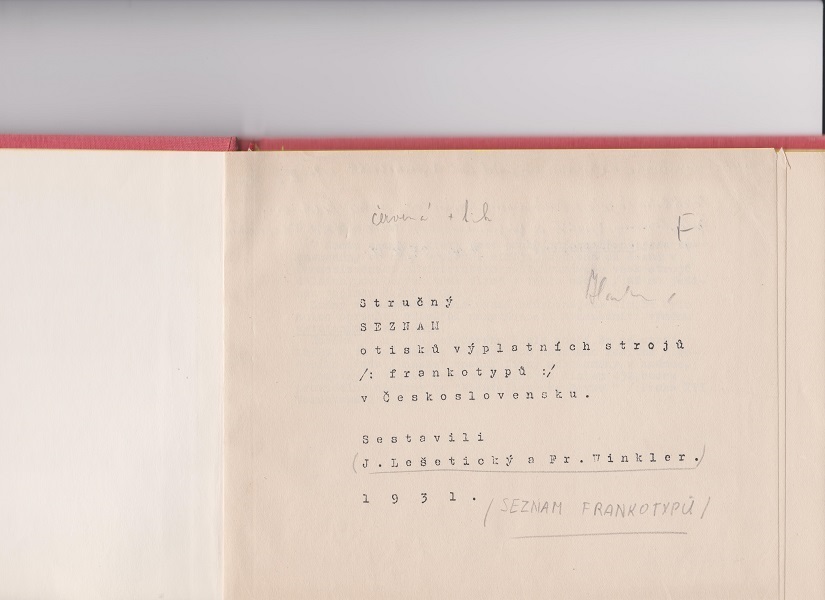 červená + lih
F
Stručný
SEZNAM
otisků výplatních strojů
/: frankotypů :/
v Československu.
Sestavili
(J. Lešetický a Fr. Winkler.)
1931.
/SEZNAM FRANKOTYPŮ/